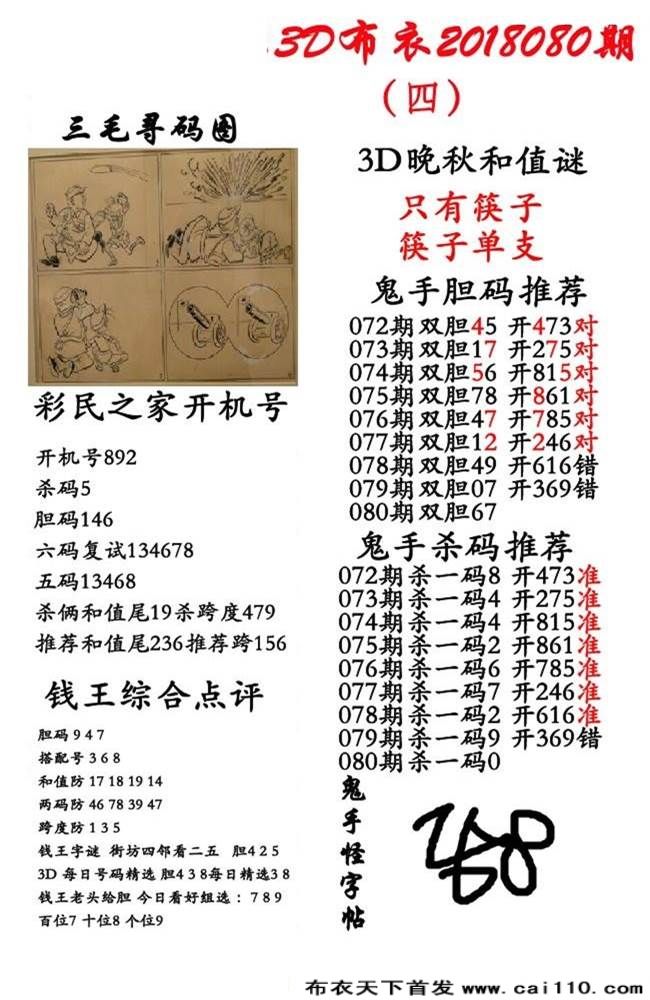 3D布衣2018080期
（四）
三毛寻码图
彩民之家开机号
开机号892
杀码5
胆码146
六码复试134678
五码13468
杀俩和值尾19杀跨度479
推荐和值尾236推荐跨156
钱王综合点评
胆码 9 4 7
搭配号 3 6 8
和值防 17 18 19 14
两码防 46 78 39 47
跨度防 1 3 5
钱王字谜 街坊四邻看二五 胆4 2 5
3D 每日号码精选 胆4 3 8每日精选3 8
钱王老头给胆 今日看好组选： 7 8 9
百位7 十位8 个位9
3D晚秋和值谜
只有筷子
筷子单支
鬼手胆码推荐
072期 双胆45 开473对
073期 双胆17 开275对
074期 双胆56 开815对
075期 双胆78 开861对
076期 双胆47 开785对
077期 双胆12 开246对
078期 双胆49 开616错
079期 双胆07 开369错
080期 双胆67
鬼手杀码推荐
072期 杀一码8 开473准
073期 杀一码4 开275准
074期 杀一码4 开815准
075期 杀一码2 开861准
076期 杀一码6 开785准
077期 杀一码7 开246准
078期 杀一码2 开616准
079期 杀一码9 开369错
080期 杀一码0
鬼手怪字帖
布衣天下首发 www.cai110.com